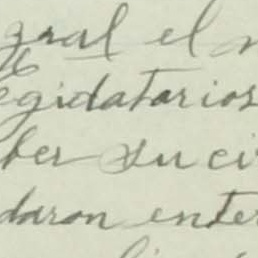 gral el
egidatarios
ber su ci
daron enter